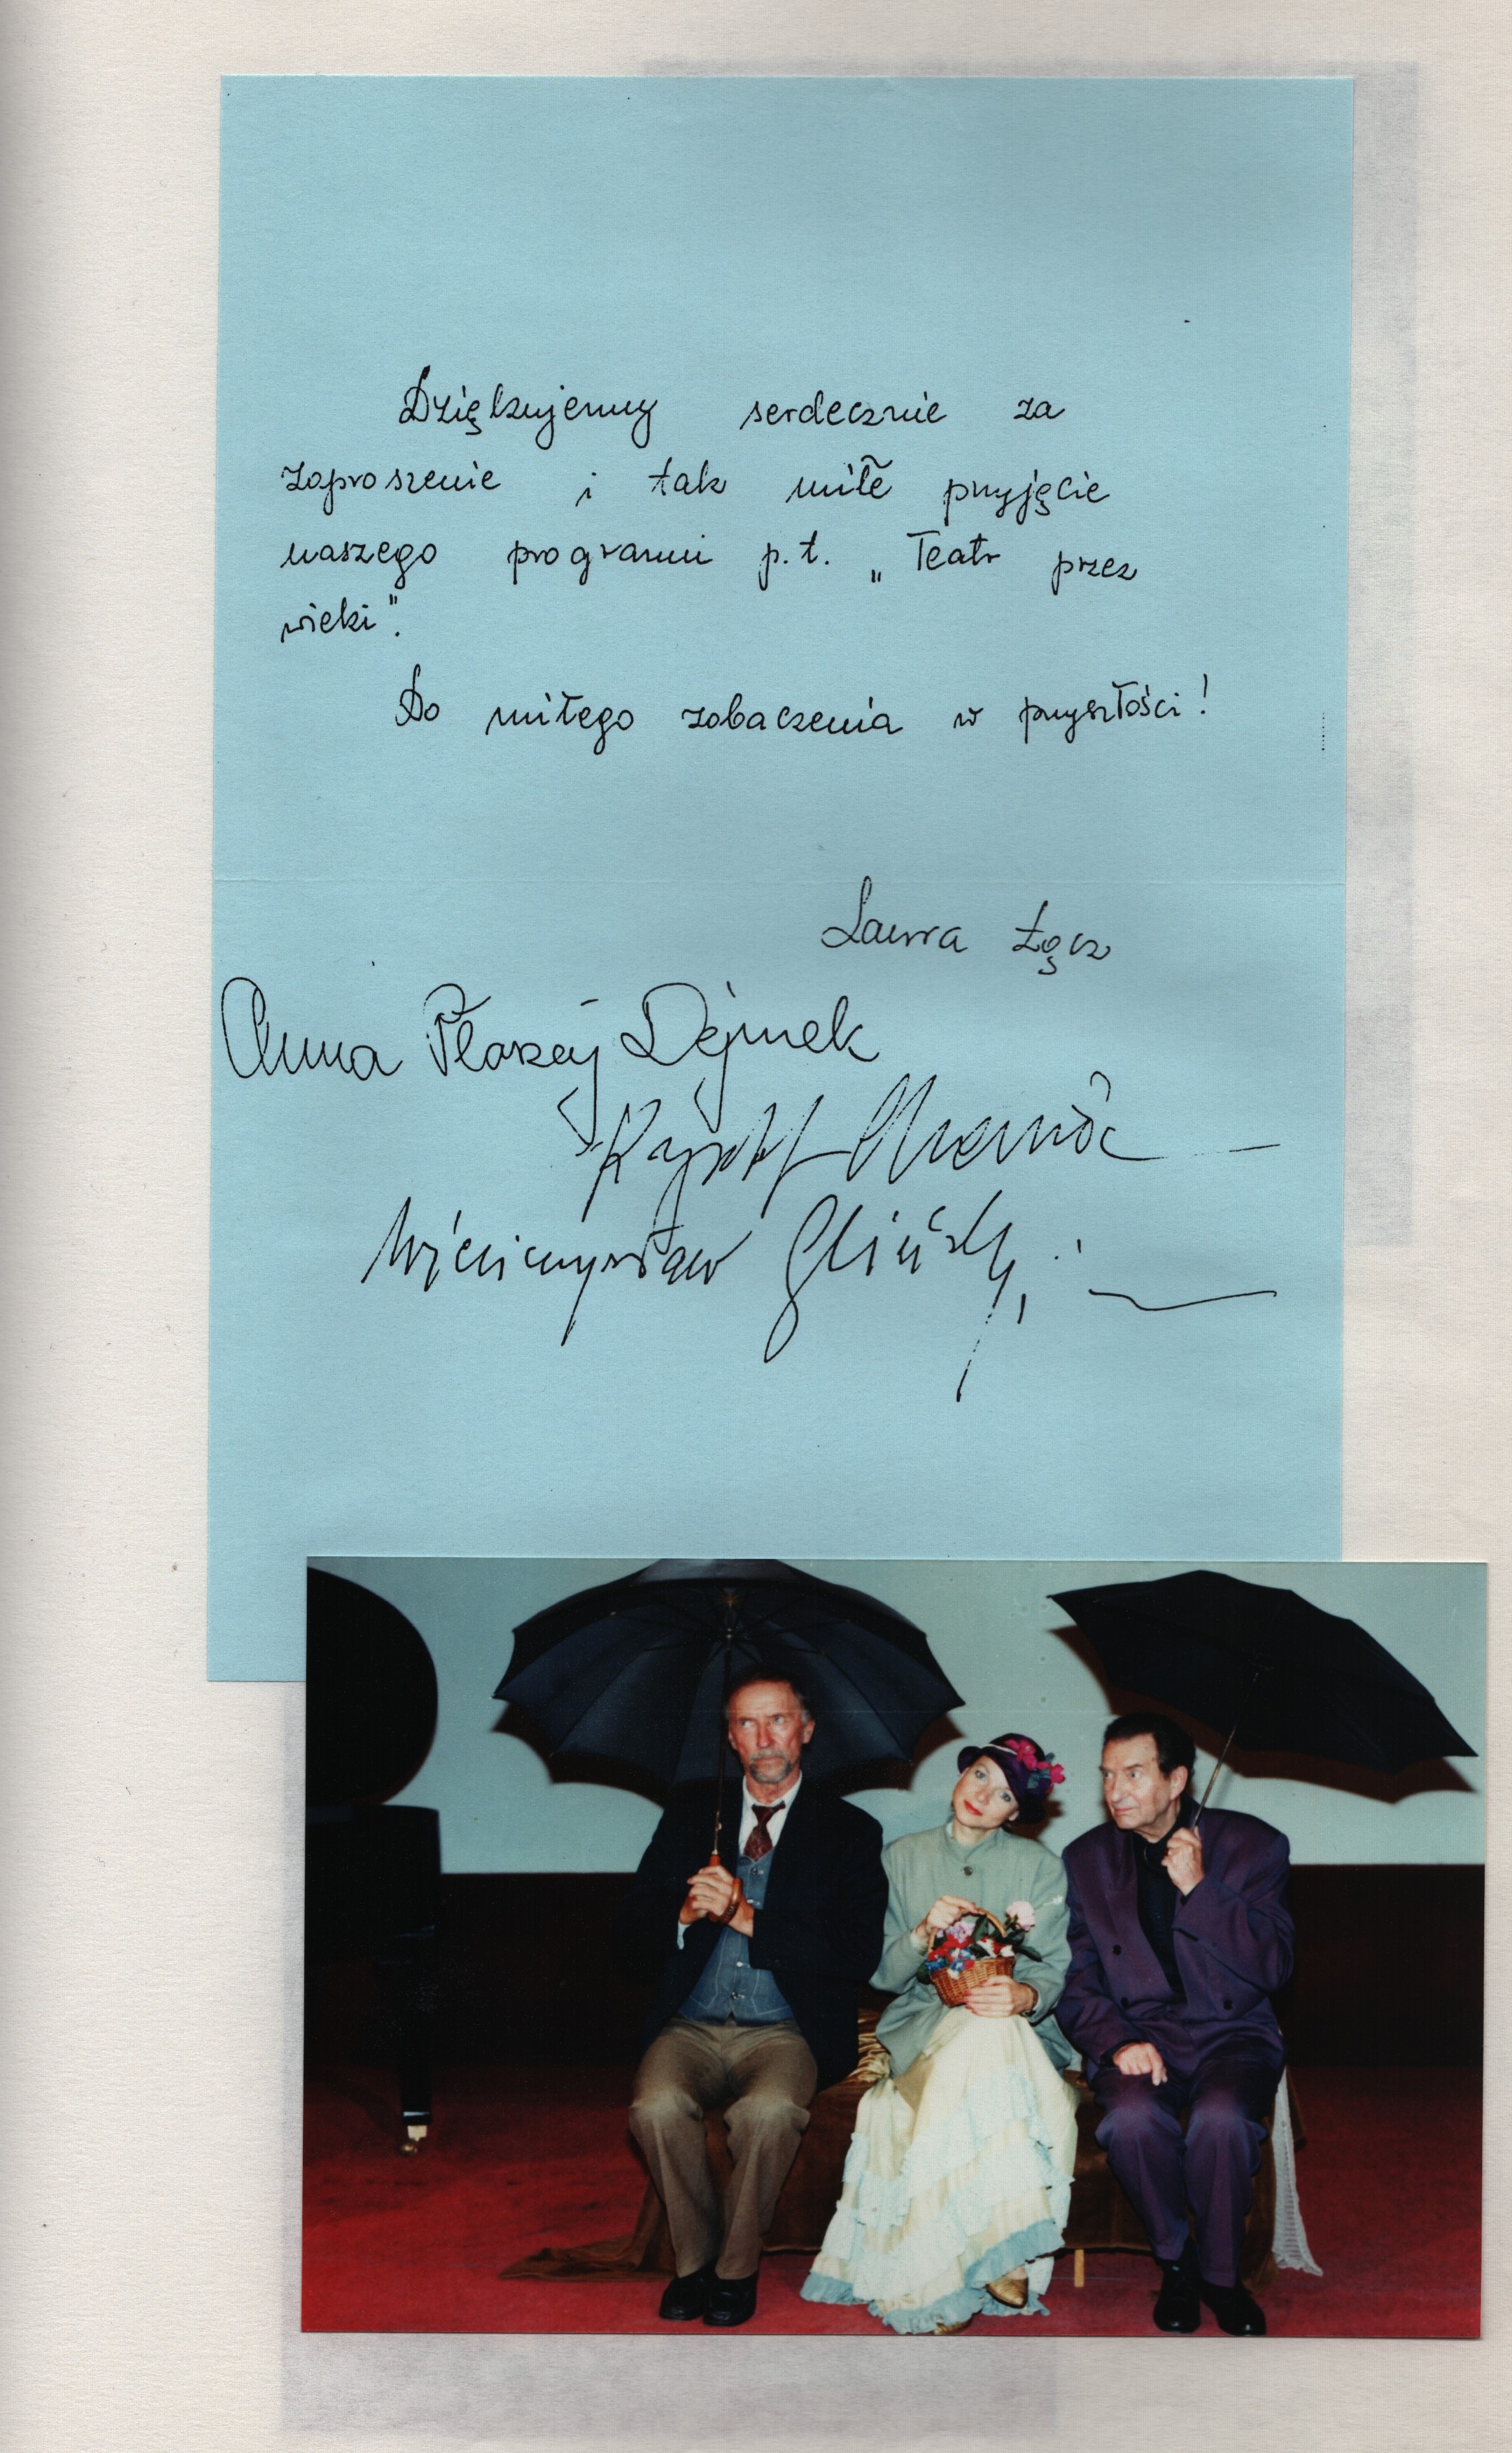 Dziękujemy serdecznie za
zaproszenie i tak miłe przyjęcie
naszego programu p.t. „Teatr przez
wieki".
Do miłego zobaczenia w przyszłości!
Laura Łącz
Anna Płoszaj Dejmek
Krzysztof Chamiec
Wieńczysław Gliński